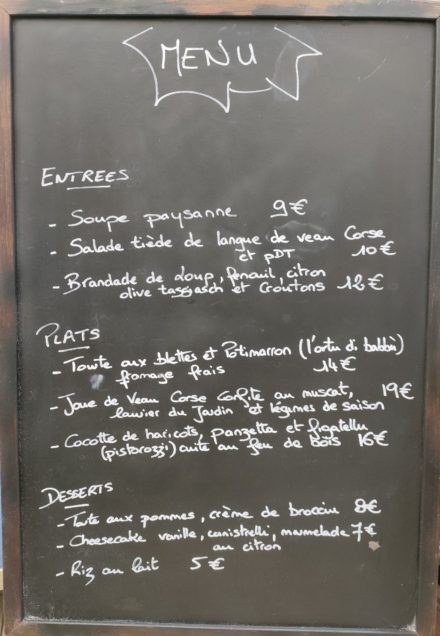 MENU
ENTREES
- Soupe paysanne 9€
- Salade tiède de langue de veau Corse
et PDT 10€
- Brandade de Loup, fenouil, citron
olive taggiasch et Croutons 12€
PLATS
- Tourte aux blettes et Potimarron (l'ortu di babbu)
fromage frais 14€
- Joue de Veau Corse Confite au muscat, 19€
laurier du Jardin et légumes de saison
- Cocotte de haricots, panzetta et figatellu
(pistorozzi) cuite au feu de Bois 16€
DESSERTS
- Tarte aux pommes, crème de brocciu 8€
- Cheesecake vanille, canistrelli, marmelade 7€
au citron
- Riz au lait 5€